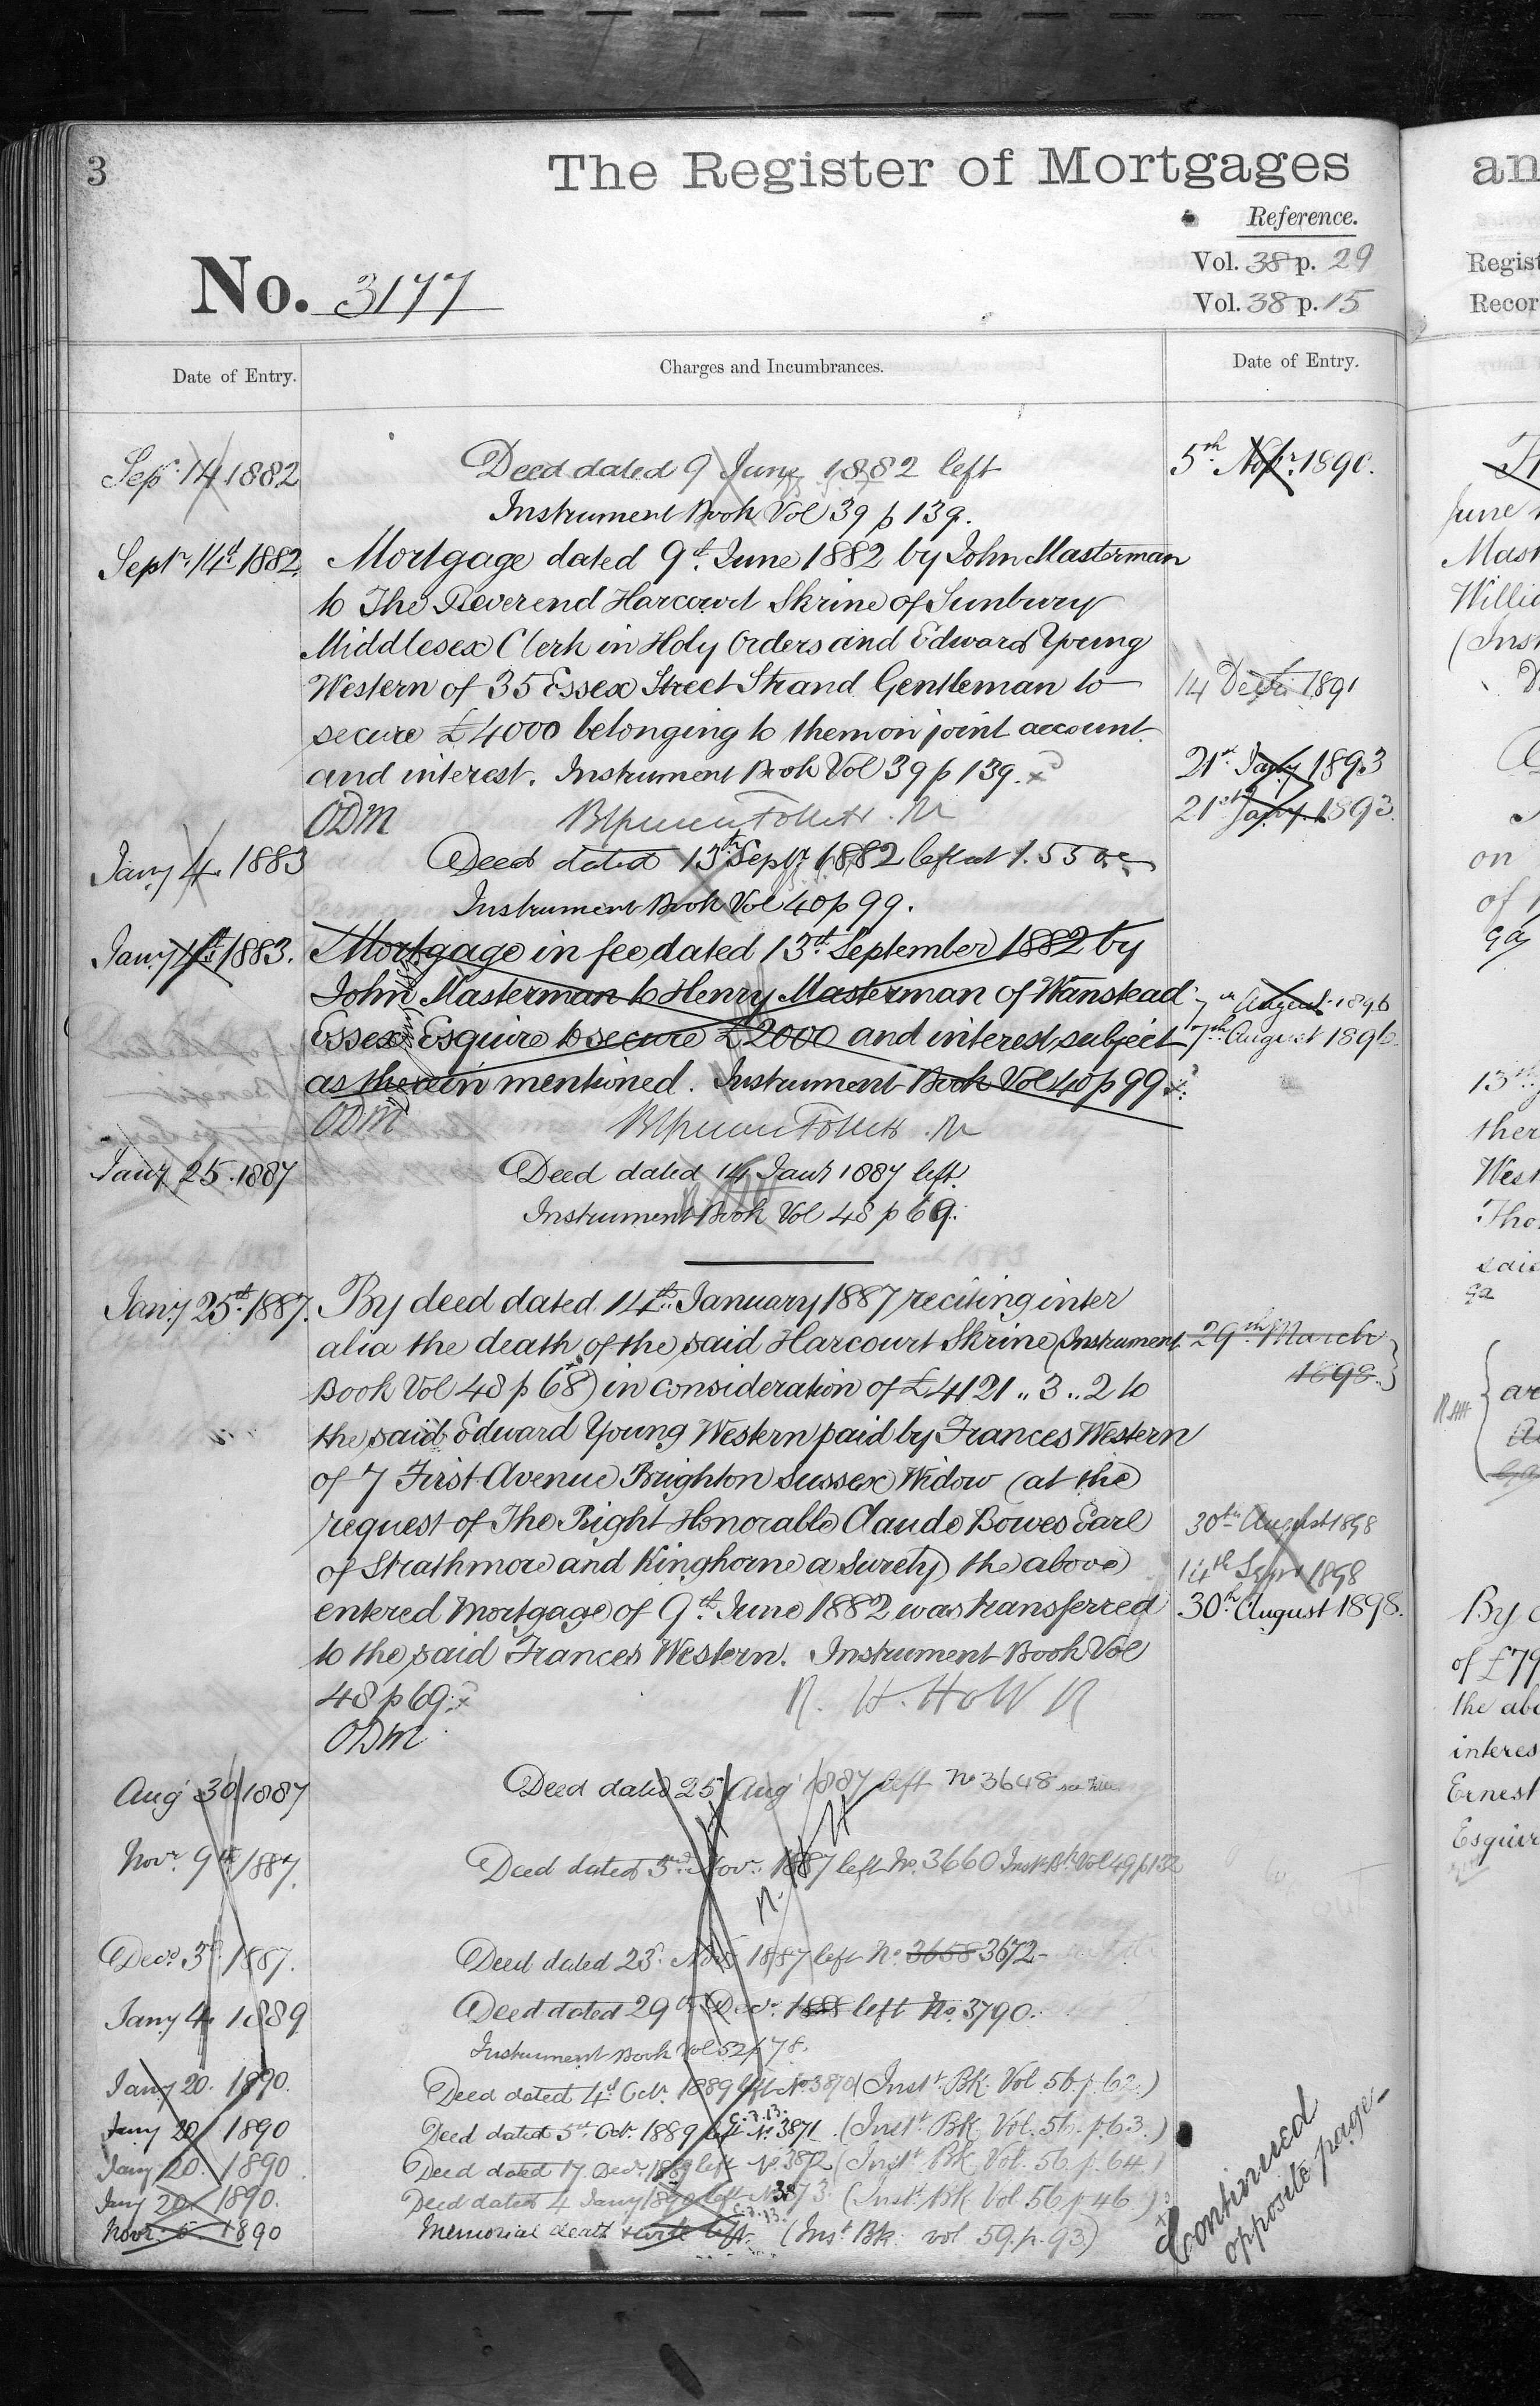 3
The Register of Mortgages
Reference.
No. 3177
Vol. 38 p. 29
Vol. 38 p. 15
Date of Entry.
Charges and Incumbrances.
Date of Entry.
Sepr. 14 1882
Deed dated 9 June 1882 left
Instrument Book Vol 39 p 139.
Septr. 14th 1882
Mortgage dated 9th June 1882 by John Masterman
to The Reverend Harcourt Skrine of Sunbury
Middlesex Clerk in Holy Orders and Edward Young
Western of 35 Essex Street Strand Gentleman to
secure £4000 belonging to them on joint account
and interest. Instrument Book Vol 39 p 139.
ODM
Jany 4. 1883
Deed dated 13th Septr 1882 left at 1.55
Instrument Book Vol 40 p 99.
Jany 4th 1883.
Mortgage in fee dated 13th September 1882 by
John Masterman to Henry Masterman of Wanstead
Essex Esquire to secure £2000 and interest subject
as therein mentioned. Instrument Book Vol 40 p 99
ODM
Jany 25. 1887
Deed dated 14 Jany 1887 left
Instrument Book Vol 48 p 69.
Jany 25th 1887.
By deed dated 14th January 1887 reciting inter
alia the death of the said Harcourt Skrine (Instrument
Book Vol 48 p 68) in consideration of £4121..3..2 to
the said Edward Young Western paid by Frances Western
of 7 First Avenue Brighton Sussex Widow (at the
request of The Right Honorable Claude Bowes Earl
of Strathmore and Kinghorne a surety) the above
entered Mortgage of 9th June 1882 was transferred
to the said Frances Western. Instrument Book Vol
48 p 69.
R. H. Holt R
ODM
Aug 30 1887
Deed dated 25 Aug 1887 left No 3648
Novr. 9th 1887.
Deed dated 5th Novr. 1887 left No. 3660 Inst. Bk. Vol 49 p 132
Decr. 3d 1887.
Deed dated 23d Novr 1887 left No. 3658 3672
Jany 4 1889
Deed dated 29th Decr. 1888 left No. 3790.
Instrument Book Vol 52 p 78.
Jany 20. 1890.
Deed dated 4th Octr. 1889 left No 3870 (Inst. Bk. Vol. 56. p. 62.)
Jany 20 1890
Deed dated 5th Octr. 1889 left No. 3871. (Inst. Bk. Vol. 56. p. 63.)
Jany 20. 1890
Deed dated 17. Decr. 1889 left No. 3872 (Inst. Bk. Vol. 56. p. 64.)
Jany 20. 1890.
Deed dated 4 Jany 1890 left No 3873. (Inst. Bk. Vol. 56 p 46.)
Novr. 5 1890
Memorial death & will left. (Inst. Bk. vol 59. p. 93)
5th Novr. 1890.
14 Decr. 1891
21st Jany 1893
21st Jany. 1893.
7th August 1896
7th August 1896.
29th March
1898.
30th August 1898
14th Sepr 1898
30th August 1898.
Continued
opposite page.
an
Regist
Recor
June
Mast
Willia
(Inst
on
of
13th
ther
West
Tho
said
are
By d
of £79
the abo
interes
Ernest
Esquire